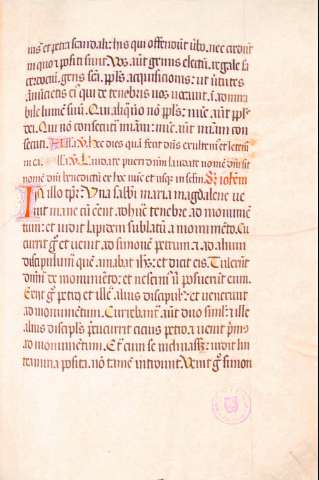 nis et petra scandali: his qui offendũt ũbo nec credũt
in quo et positi sunt Vos aũt genus electũ, regale sa
cerdociũ, gens scã, ppłs acquisicionis: ut ũtutes
annũcietis eius qui de tenebris uos uocauit ĩ admira
bile lumen suũ. Qui aliqñ nõ ppłs: nũc aũt ppłs
dei. Qui nõ consecuti miam: nũc aũt miam con
secuti. Alła ỹ. hec dies quã fecit dñs exultem' et letem'
in ea. Alła ỹ. Laudate pueri dñm laudate nomẽ dñi sit
nomẽ dñi benedictũ ex hoc nũc et usq; in sclm. S. iohem
In illo tpr. Vna sabbi maria magdalene ue
nit mane cũ adhuc tenebre ad monumẽ
tum: et uidit lapidem sublatũ a monumẽto. Cu
currit g° et uenit ad simonẽ petrum et ad alium
discipulum quẽ amabat ihs: et dicit eis. Tulerũt
dñm de monumẽto: et nescim' ubi posuerũt eum.
Exiit g° petrus et ille alius discipul's: et uenerunt
ad monumentum. Currebant aũt duo simul: et ille
alius discipls precucurrit cicius petro et uenit prim's
ad monumẽtum. Et cum se inclinasset: uidit lin
teamina posita: nõ tamẽ introiuit. Venit g° simon